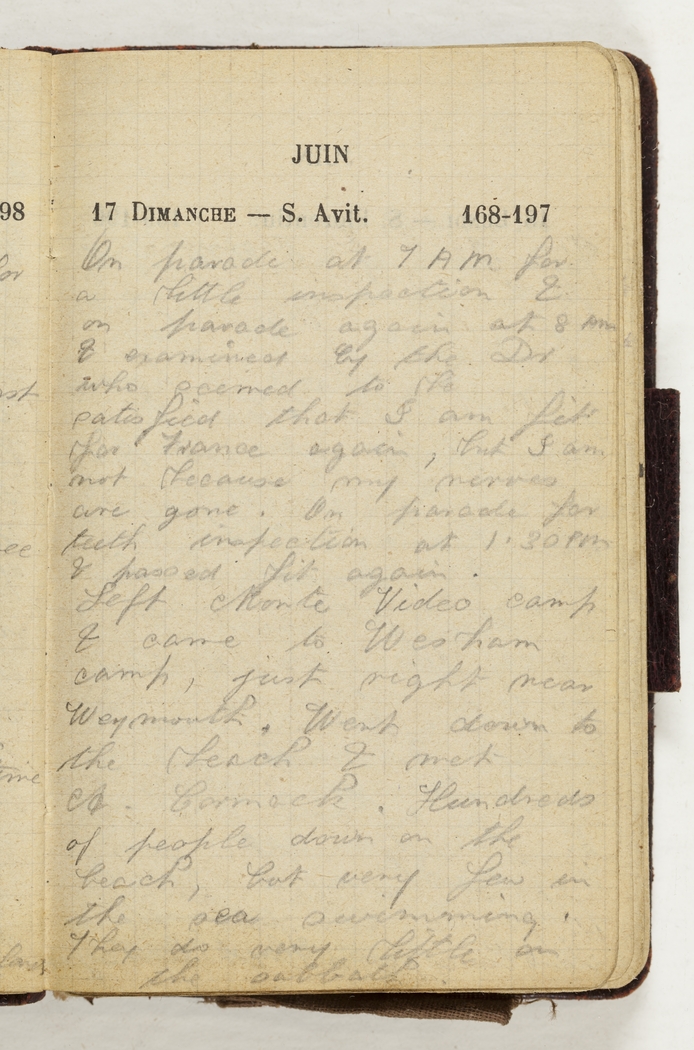 JUIN
98
17 DIMANCHE — S. Avit. 168-197
On parade at 7 AM for
a little inspection &
on parade again at 8 AM
& examined by the Dr
who seemed to be
satisfied that I am fit
for France again, but I am
not because my nerves
are gone. On parade for
teeth inspection at 1.30PM
& passed fit again.
Left Monte Video camp
& came to Wesham
camp, just right near
Weymouth. Went down to
the beach & met
Cormack. Hundreds
of people down on the
beach, but very few in
the sea swimming.
They do very little on
the sabbath.